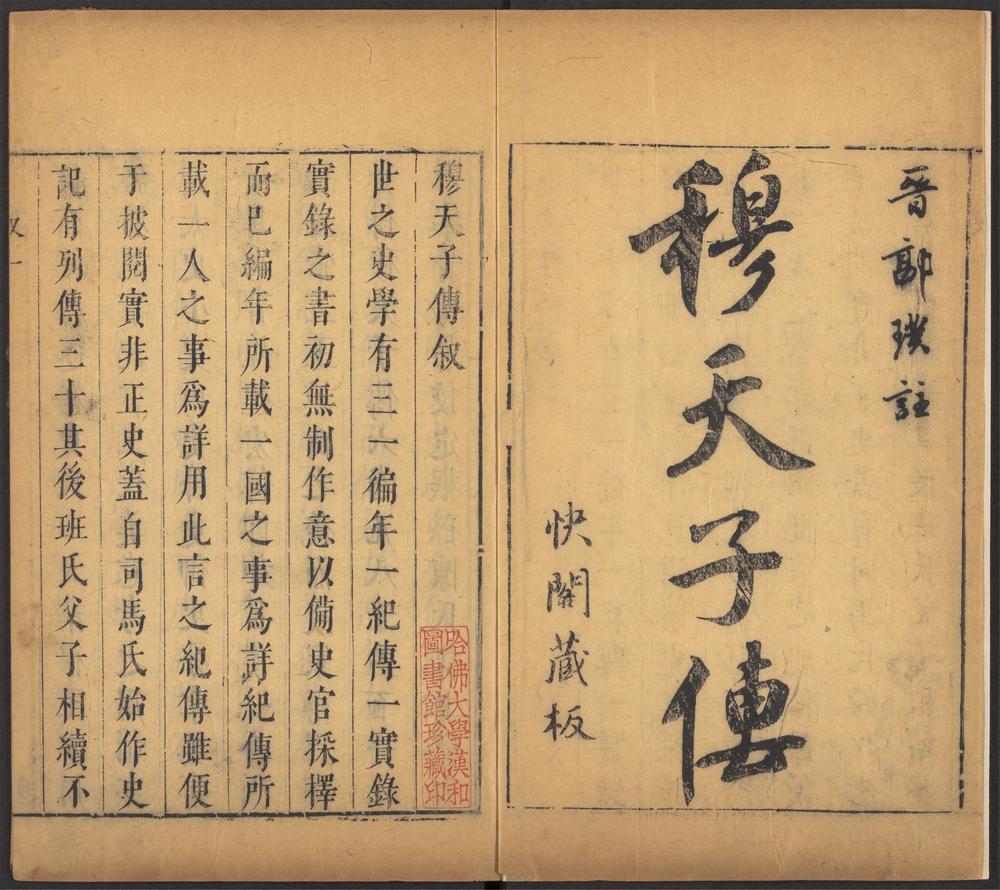 晉郭璞註
穆天子傳
快閣藏板
穆天子傳叙
世之史學有三一徧年一紀傳一實錄
實錄之書初無制作意以備史官採擇
而已編年所載一國之事爲詳紀傳所
載一人之事爲詳用此言之紀傳雖便
于披閱實非正史蓋自司馬氏始作史
記有列傳三十其後班氏父子相續不
哈佛大學漢和
圖書館珍藏印